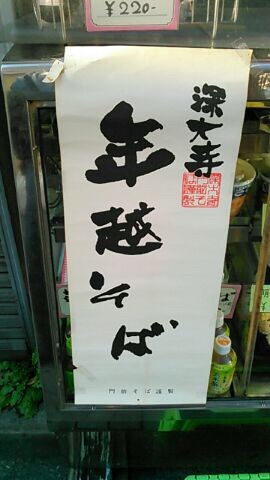 ¥220-
深大寺
年越そば
門前そば謹製